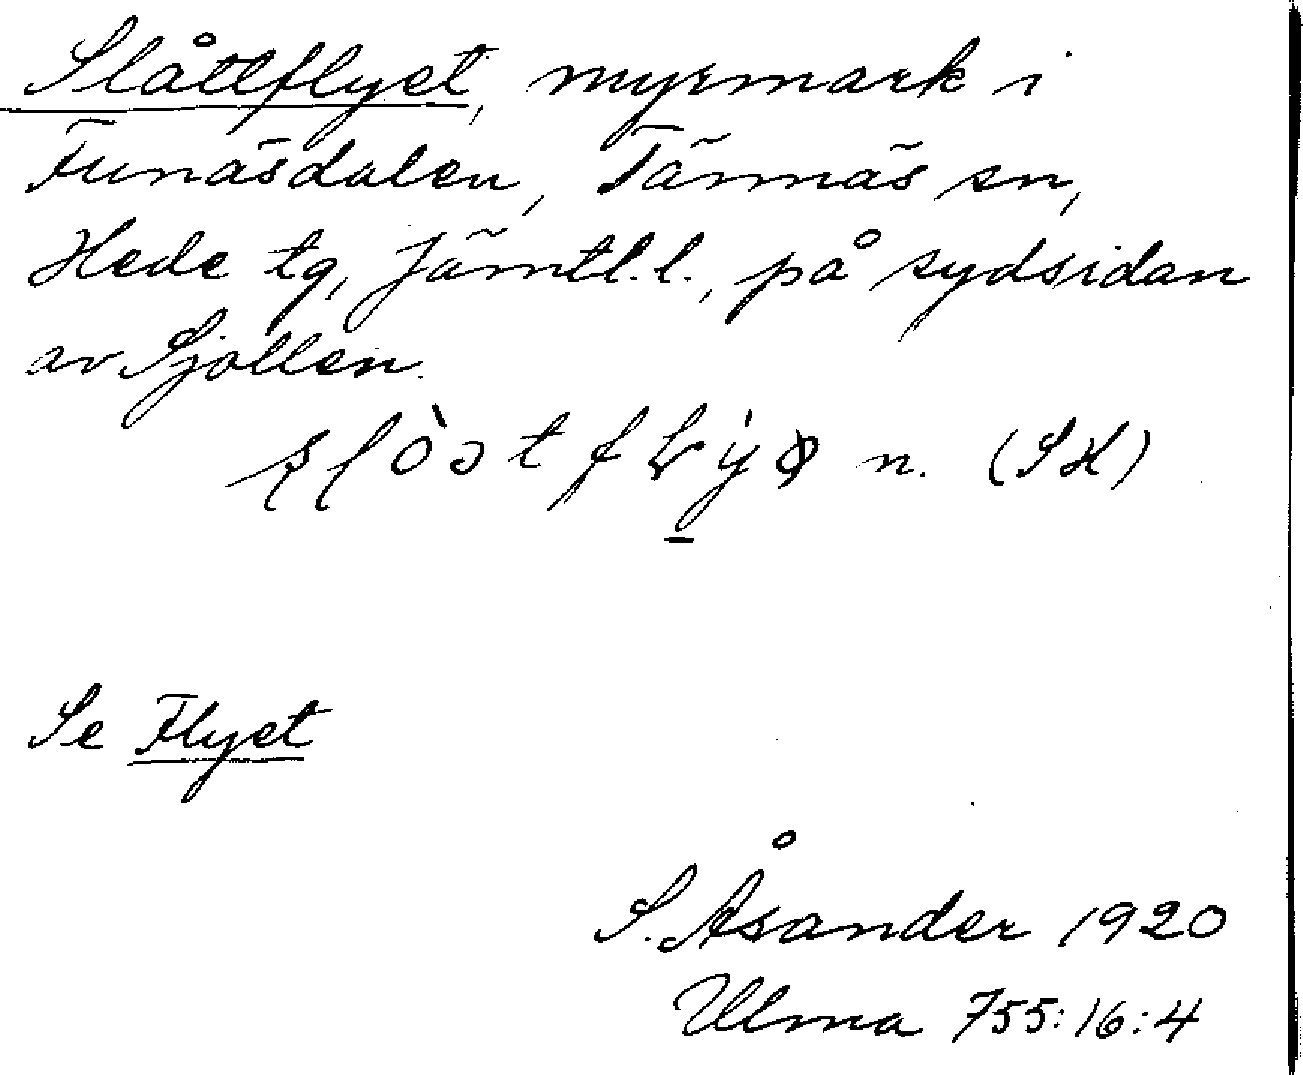 Slåttflyet, myrmark i
Funäsdalen, Tännäs sn,
Hede tg, Jämtl. l., på sydsidan
av Sjollen.
n. (SH)
Se Flyet
S. Åsander 1920
Ulma 755:16:4